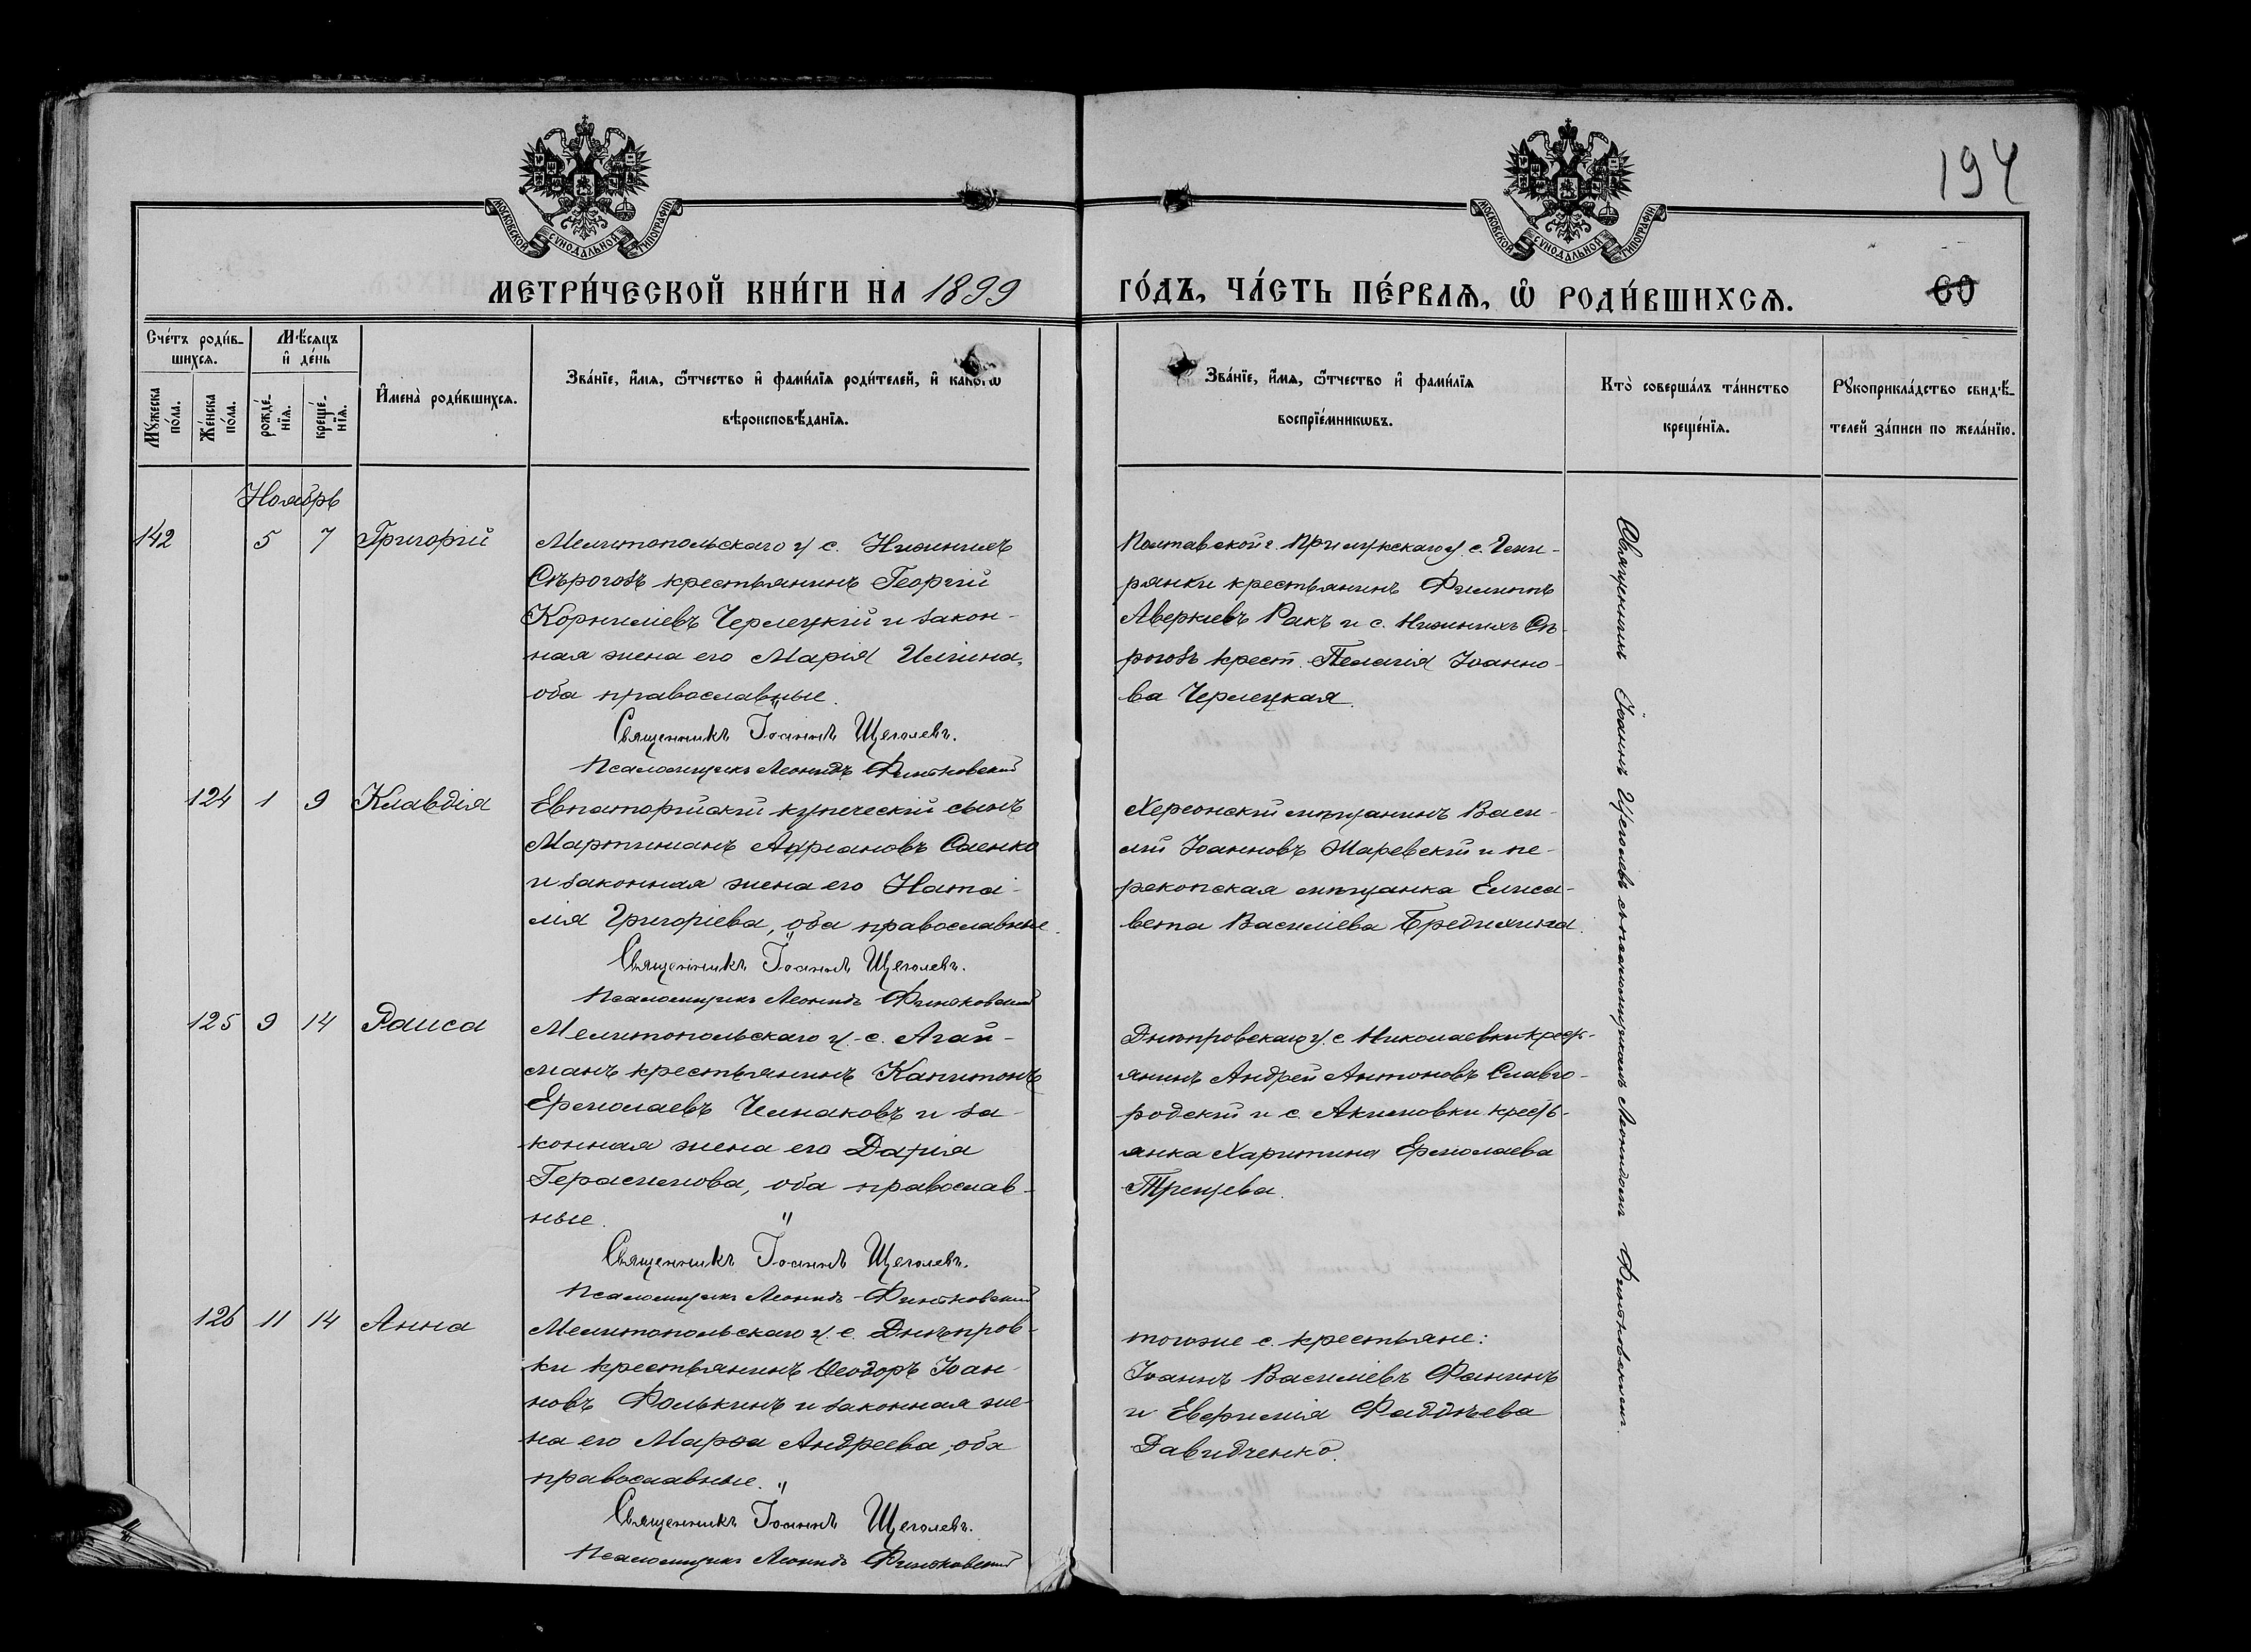 194
МОСКОВСКОЙ СѴНОДАЛЬНОЙ ТИПОГРАФІИ
МОСКОВСКОЙ СѴНОДАЛЬНОЙ ТИПОГРАФІИ
МЕТРИ́ЧЕСКОЙ КНИ́ГИ НА 1899
ГО́ДЪ, ЧА́СТЬ ПЕ́РВАѦ, Ѡ҆ РОДИ́ВШИХСѦ.
60
Сче́тъ роди́в-
шихсѧ.
Мѣ́сѧцъ
и҆ де́нь
Мꙋ́жеска
по́ла.
Же́нска
по́ла.
рожде́-
нїѧ.
креще́-
нїѧ.
И҆мена̀ роди́вшихсѧ.
Зва́нїе, и҆́мѧ, ѻ҆́тчество и҆ фамі́лїѧ роди́телей, и҆ како́гѡ
вѣроисповѣ́данїѧ.
Зва́нїе, и҆́мѧ, ѻ҆́тчество и҆ фамі́лїѧ
воспрїе́мникѡвъ.
Кто̀ соверша́лъ та́инство
креще́нїѧ.
Рꙋкоприкла́дство свидѣ́-
телей за́писи по жела́нїю.
Ноябрь
142 5 7 Григорій
Мелитопольскаго у. с. Нижнихъ
Сѣрогозъ крестьянинъ Георгій
Корниліевъ Черлецкій и закон-
ная жена его Марія Илиина,
оба православные.
Священникъ Іоаннъ Щеголевъ.
Псаломщикъ Леонидъ Финтковский
Полтавской г. Прилукскаго у. с.
рянки крестьянинъ Филиппъ
Аверкіевъ Ракъ и с. Нижнихъ Сѣ-
рогозъ крест. Пелагія Іоанно-
ва Черлецкая.
124 1 9 Клавдія
Евпаторийский купеческій сынъ
Мартиніанъ Адріановъ Саенко
и законная жена его Ната-
лія Григоріева, оба православные.
Священникъ Іоаннъ Щеголевъ.
Псаломщикъ Леонидъ Финтковский
Херсонскій мѣщанинъ Васи-
лій Іоанновъ Жаревскій и пе-
рекопская мѣщанка Елиса-
вета Василіева Бредихина.
125 9 14 Раиса
Мелитопольскаго у. с. Агай-
манъ крестьянинъ Капитонъ
Ермолаевъ Чумаковъ и за-
конная жена его Дарія
Герасимова, оба православ-
ные.
Священникъ Іоаннъ Щеголевъ.
Псаломщикъ Леонидъ Финтковский
Днѣпровскаго у. с. Николаевки крест-
янинъ Андрей Антоновъ Славго-
родскій и с. Акимовки крест-
янка Харитина Ермолаева
Трещева.
126 11 14 Анна
Мелитопольскаго у. с. Днѣпров-
ки крестьянинъ Ѳеодоръ Іоан-
новъ Фолькинъ и законная же-
на его Марѳа Андреева, оба
православные.
Священникъ Іоаннъ Щеголевъ.
Псаломщикъ Леонидъ Финтковский
тогоже с. крестьяне:
Іоаннъ Василіевъ Фанинъ
и Евфимія Фаддѣева
Давидченко.
Священникъ Іоаннъ Щеголевъ съ псаломщикомъ Леонидомъ Финтковскимъ.